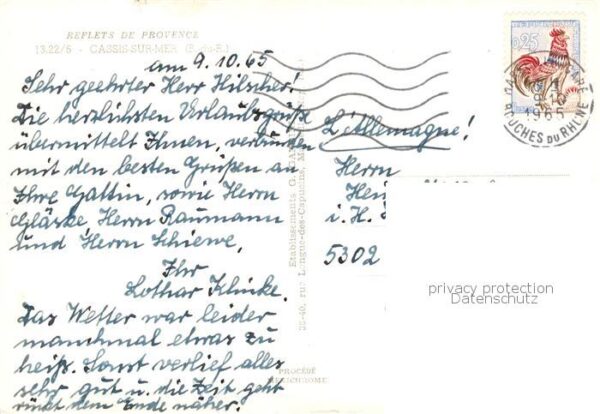 REFLETS DE PROVENCE
13.22/6 - CASSIS-SUR-MER (B.-du-R.)
am 9.10.65
Sehr geehrter Herr Hilscher!
Die herzlichsten Urlaubsgrüße
übermittelt Ihnen, verbunden
mit den besten Grüßen an
Ihre Gattin, sowie Herrn
Gläske Herrn Raumann
und Herrn Schiewe,
Ihr
Lothar Klinke.
Das Wetter war leider
manchmal etwas zu
heiß. Sonst verlief alles
sehr gut u. die Zeit geht
rückt dem Ende näher.
Etablissements
38-40, rue Longue-des-Capucins,
PROCÉDÉ
MEXICHROME
0,25
1965
BOUCHES DU RHONE
L'Allemagne!
Herrn
i. H.
5302
privacy protection
Datenschutz